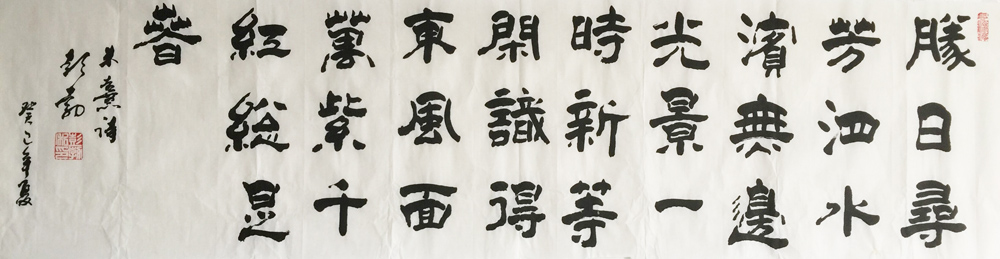 勝日尋
芳泗水
濱無邊
光景一
時新等
閑識得
東風面
萬紫千
紅総是
春
朱熹诗
彭勃
癸巳年夏